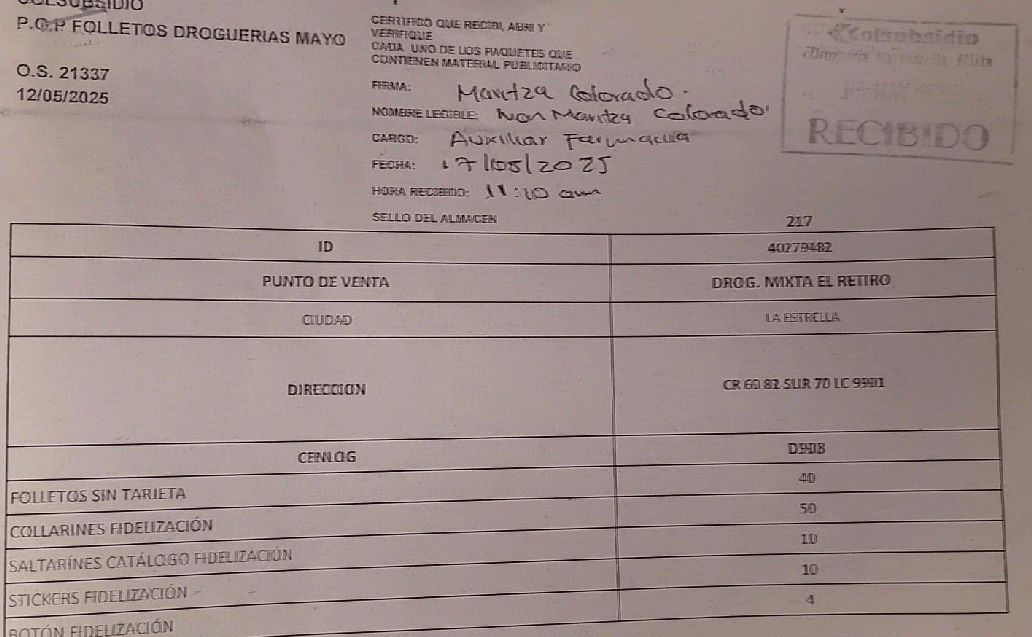 COLSUBSIDIO
P.O.P FOLLETOS DROGUERIAS MAYO
O.S. 21337
12/05/2025
CERTIFICO QUE RECIBI, ABRI Y
VERIFIQUE
CADA UNO DE LOS PAQUETES QUE
CONTIENEN MATERIAL PUBLICITARIO
FIRMA: Maritza Colorado.
NOMBRE LEGIBLE: Maritza Colorado
CARGO: Auxiliar Farmacia
FECHA: 17/05/2025
HORA RECIBIDO: 11:10 am
SELLO DEL ALMACEN
Colsubsidio
RECIBIDO
217
ID 40279482
PUNTO DE VENTA DROG. MIXTA EL RETIRO
CIUDAD LA ESTRELLA
DIRECCION CR 60 82 SUR 70 LC 9901
CENLOG D908
FOLLETOS SIN TARJETA 40
COLLARINES FIDELIZACIÓN 50
SALTARÍNES CATÁLOGO FIDELIZACIÓN 10
STICKERS FIDELIZACIÓN 10
BOTÓN FIDELIZACIÓN 4